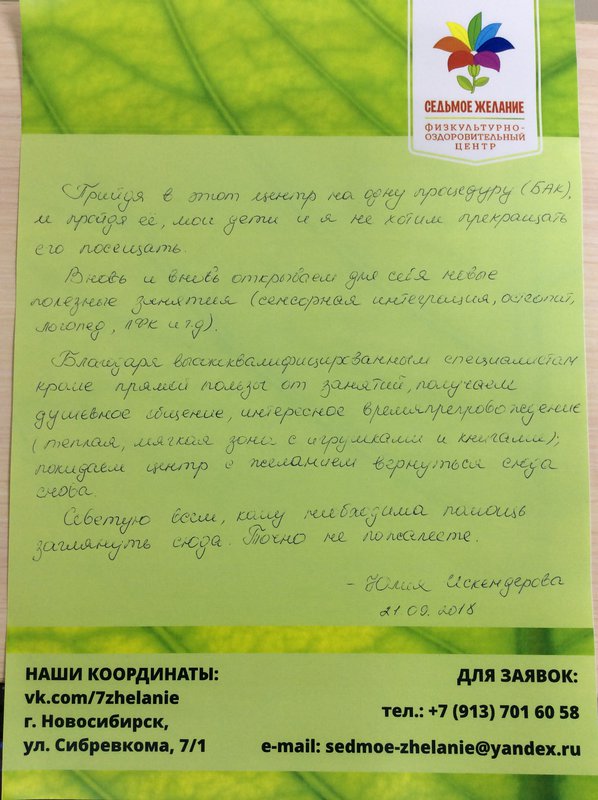 СЕДЬМОЕ ЖЕЛАНИЕ
ФИЗКУЛЬТУРНО-
ОЗДОРОВИТЕЛЬНЫЙ
ЦЕНТР
Прийдя в этот центр на одну процедуру (БАК),
и пройдя её, мои дети и я не хотим прекращать
его посещать.
Вновь и вновь открываем для себя новые
полезные занятия (сенсорная интеграция, остеопат,
логопед, ЛФК и т.д).
Благодаря высококвалифицированным специалистам
кроме прямой пользы от занятий, получаем
душевное общение, интересное времяпрепровождение
(теплая, мягкая зона с игрушками и книгами);
покидаем центр с желанием вернуться сюда
снова.
Советую всем, кому необходима помощь
заглянуть сюда. Точно не пожалеете.
- Юлия Искендерова
21.09.2018
НАШИ КООРДИНАТЫ:
vk.com/7zhelanie
г. Новосибирск,
ул. Сибревкома, 7/1
ДЛЯ ЗАЯВОК:
тел.: +7 (913) 701 60 58
e-mail: sedmoe-zhelanie@yandex.ru